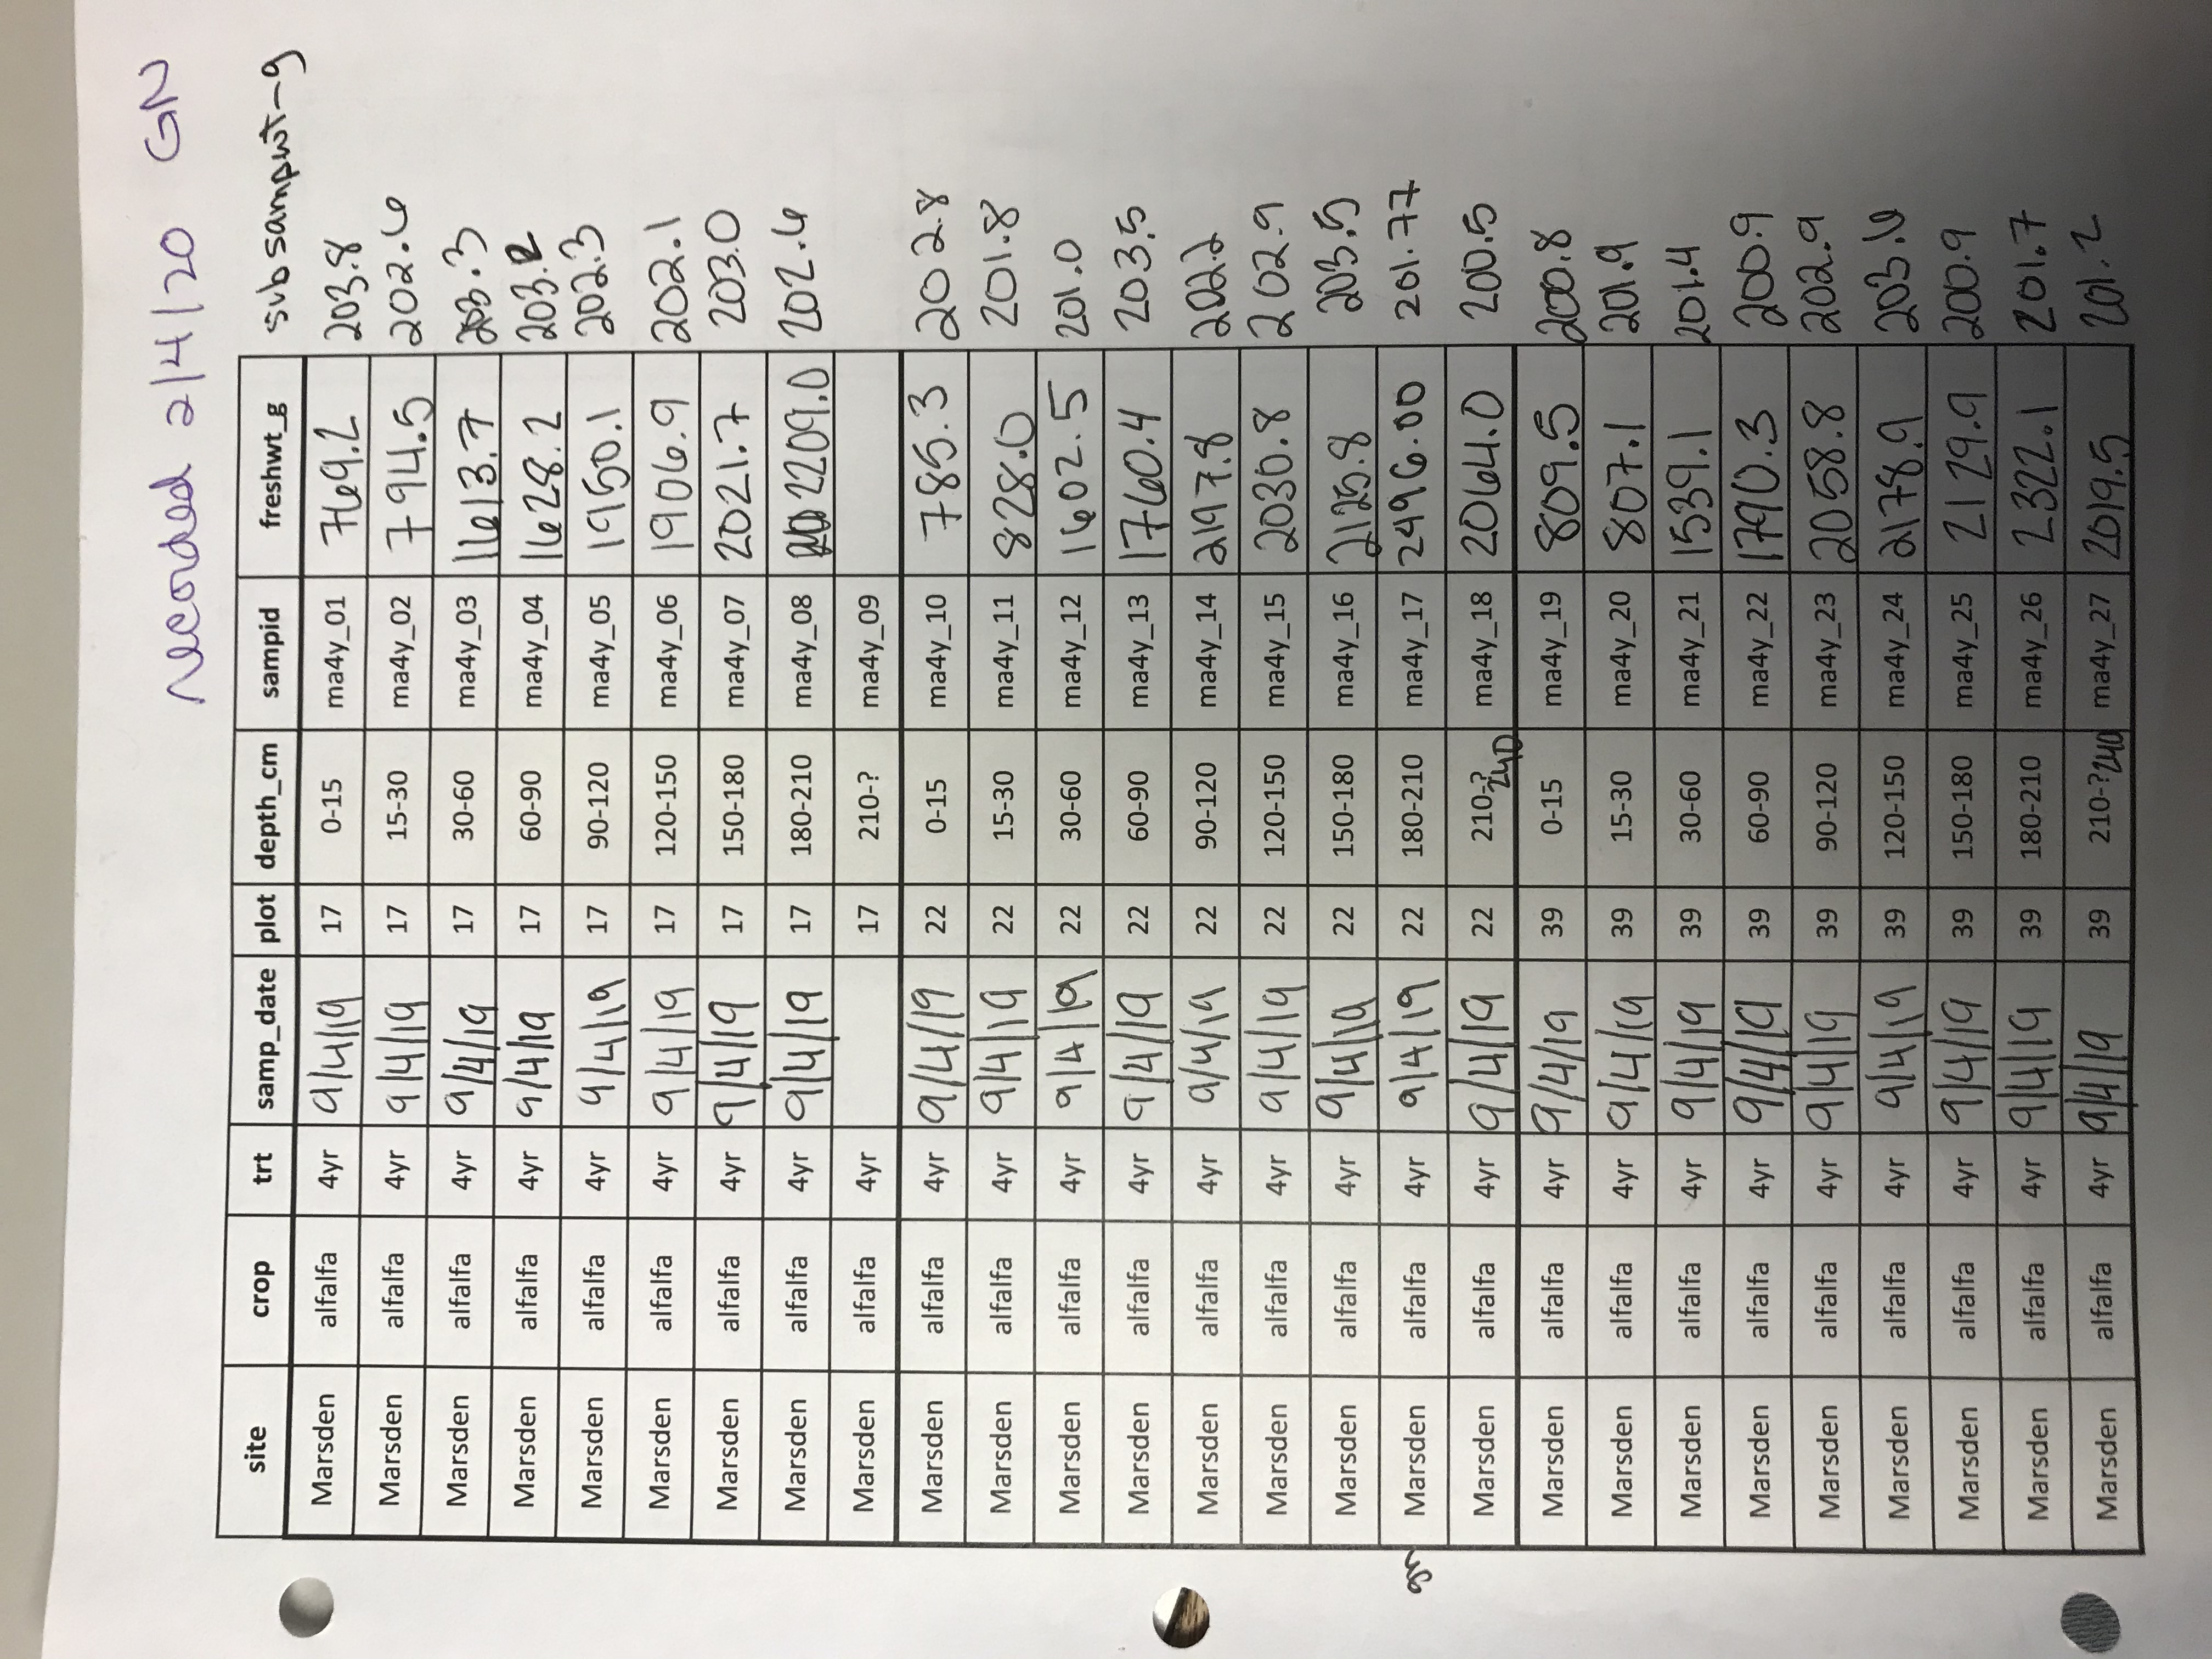 recorded 2/4/20 GN
site crop trt samp_date plot depth_cm sampid freshwt_g subsampwt-g
Marsden alfalfa 4yr 9/4/19 17 0-15 ma4y_01 769.2 203.8
Marsden alfalfa 4yr 9/4/19 17 15-30 ma4y_02 794.5 202.6
Marsden alfalfa 4yr 9/4/19 17 30-60 ma4y_03 1613.7 203.3
Marsden alfalfa 4yr 9/4/19 17 60-90 ma4y_04 1628.2 203.2
Marsden alfalfa 4yr 9/4/19 17 90-120 ma4y_05 1950.1 202.3
Marsden alfalfa 4yr 9/4/19 17 120-150 ma4y_06 1906.9 202.1
Marsden alfalfa 4yr 9/4/19 17 150-180 ma4y_07 2021.7 203.0
Marsden alfalfa 4yr 9/4/19 17 180-210 ma4y_08 2209.0 202.6
Marsden alfalfa 4yr 17 210-? ma4y_09
Marsden alfalfa 4yr 9/4/19 22 0-15 ma4y_10 785.3 202.8
Marsden alfalfa 4yr 9/4/19 22 15-30 ma4y_11 828.0 201.8
Marsden alfalfa 4yr 9/4/19 22 30-60 ma4y_12 1602.5 201.0
Marsden alfalfa 4yr 9/4/19 22 60-90 ma4y_13 1760.4 203.5
Marsden alfalfa 4yr 9/4/19 22 90-120 ma4y_14 2197.8 202.2
Marsden alfalfa 4yr 9/4/19 22 120-150 ma4y_15 2030.8 202.9
Marsden alfalfa 4yr 9/4/19 22 150-180 ma4y_16 2125.8 203.5
gn Marsden alfalfa 4yr 9/4/19 22 180-210 ma4y_17 2496.00 201.77
Marsden alfalfa 4yr 9/4/19 22 210-? 240 ma4y_18 2064.0 200.5
Marsden alfalfa 4yr 9/4/19 39 0-15 ma4y_19 809.5 200.8
Marsden alfalfa 4yr 9/4/19 39 15-30 ma4y_20 807.1 201.9
Marsden alfalfa 4yr 9/4/19 39 30-60 ma4y_21 1539.1 201.4
Marsden alfalfa 4yr 9/4/19 39 60-90 ma4y_22 1790.3 200.9
Marsden alfalfa 4yr 9/4/19 39 90-120 ma4y_23 2058.8 202.9
Marsden alfalfa 4yr 9/4/19 39 120-150 ma4y_24 2178.9 203.6
Marsden alfalfa 4yr 9/4/19 39 150-180 ma4y_25 2129.9 200.9
Marsden alfalfa 4yr 9/4/19 39 180-210 ma4y_26 2322.1 201.7
Marsden alfalfa 4yr 9/4/19 39 210-? 240 ma4y_27 2019.5 201.2